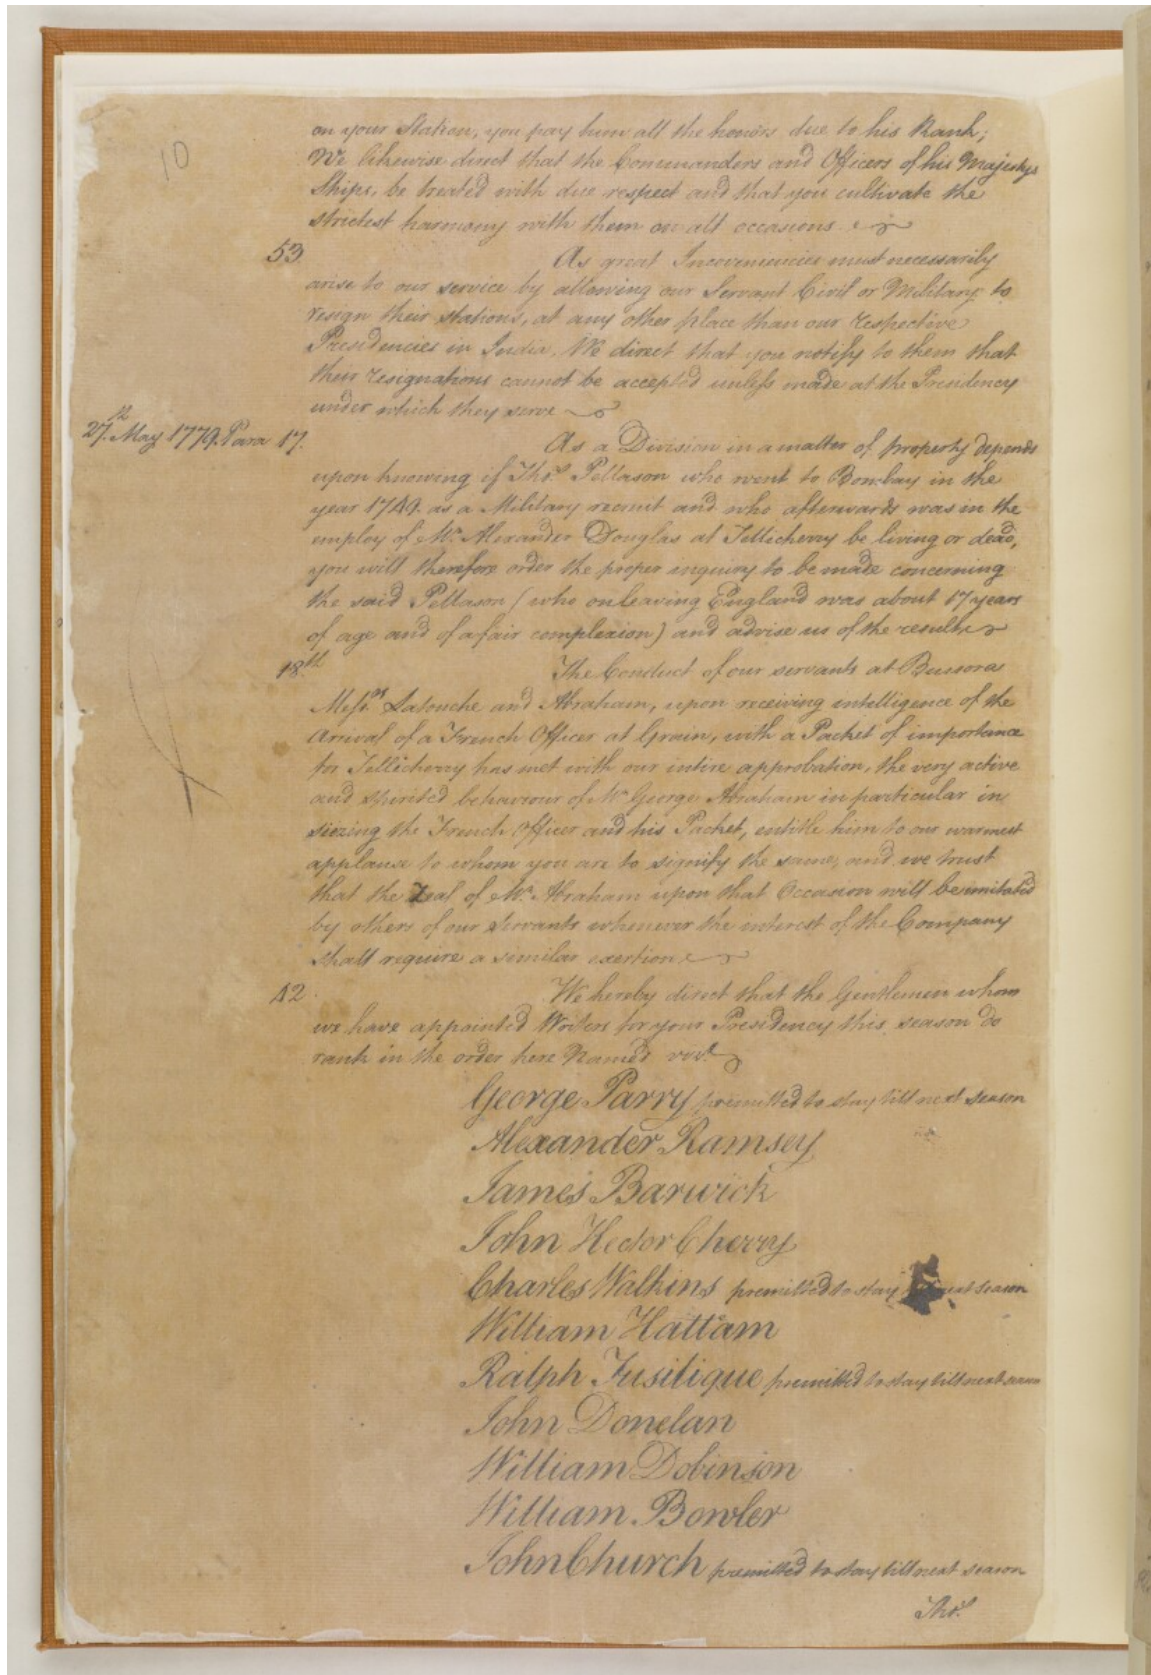 10
on your Station, you pay him all the honors due to his Rank;
We likewise direct that the Commanders and Officers of his Majestys
Ships, be treated with due respect and that you cultivate the
strictest harmony with them on all occasions
53. As great Inconveniencies must necessarily
arise to our service by allowing our Servant Civil or Military to
resign their stations, at any other place than our respective
Presidencies in India, We direct that you notify to them that
their resignations cannot be accepted unless made at the Presidency
under which they serve
27th. May 1779. Para 17. As a Division in a matter of property depends
upon knowing if Thos. Pellason who went to Bombay in the
year 1749. as a Military recruit and who afterwards was in the
employ of Mr. Alexander Douglas at Tellicherry be living or dead,
you will therefore order the proper inquiry to be made concerning
the said Pellason (who on leaving England was about 17 years
of age and of a fair complexion) and advise us of the result
18th. The Conduct of our servants at Bussora
Messrs. Latouche and Abraham, upon receiving intelligence of the
Arrival of a French Officer at Grain, with a Packet of importance
for Tellicherry has met with our intire approbation, the very active
and spirited behaviour of Mr. George Abraham in particular in
siezing the French Officer and his Packet, entitle him to our warmest
applause to whom you are to signify the same, and we trust
that the Zeal of Mr. Abraham upon that Occasion will be imitated
by others of our Servants whenever the interest of the Company
shall require a similar exertion
42. We hereby direct that the Gentlemen whom
we have appointed Writers for your Presidency this season do
rank in the order here Named vizt.
George Parry premitted to stay till next season
Alexander Ramsey
James Barwick
John Hector Cherry
Charles Watkins premitted to stay next season
William Hattam
Ralph Fusilique premitted to stay till next season
John Donelan
William Dobinson
William Bowler
John Church premitted to stay till next season
Thos.